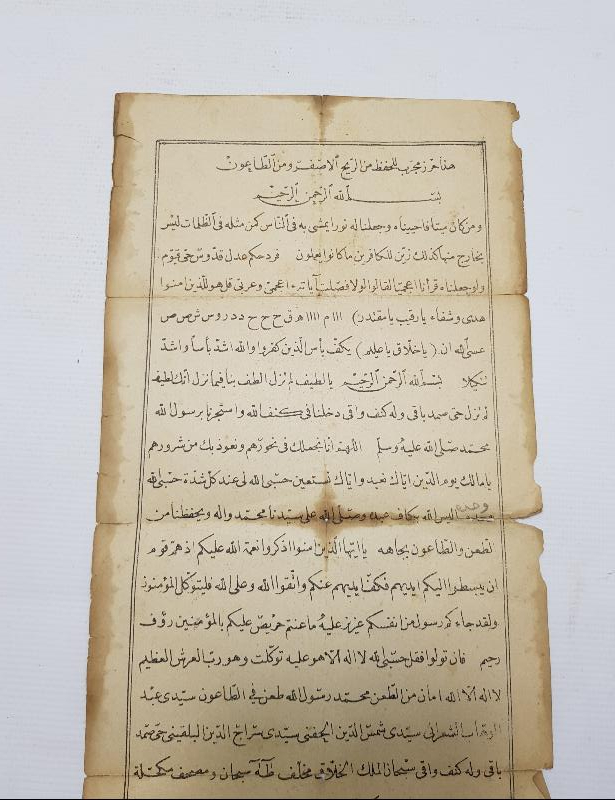 هذا حرز مجرب للحفظ من الريح الاصفر ومن الطاعون
بسم الله الرحمن الرحيم
ومن كان ميتا فاحييناه وجعلنا له نورا يمشى به فى الناس كمن مثله فى الظلمات ليس
بخارج منها كذلك زين للكافرين ما كانوا يعلون فرد حكم عدل قدوس حى قيوم
ولو جعلناه قرآنا اعجميا لقالوا لولا فصلت آياته اعجمى وعربى قل هو للذين امنوا
هدى وشفاء يا رقيب يا مقتدر) ااا م اااا ه ق ح ح ح د د ر و س ش ص ص
عسى الله ان (يا خلاق يا عليم) يكف بأس الذين كفروا والله اشد بأسا واشد
تنكيلا بسم الله الرحمن الرحيم يا لطيف لم نزل الطف بنا فيما نزل انك لطيف
لم نزل حى صمد باقى وله كنف واقى دخلنا فى كنف الله واستجرنا برسول الله
محمد صلى الله عليه وسلم اللهم انا نجعلك فى نحورهم ونعوذ بك من شرورهم
يا مالك يوم الدين اياك نعبد واياك نستعين حسبى الله لى عند كل شدة حسبى الله
اليس الله بكاف عبده وصلى الله على سيدنا محمد واله وصحبه ويحفظنا من
الطعن والطاعون بجاهه يا ايها الذين امنوا اذكروا نعمة الله عليكم اذ هم قوم
ان يبسطوا اليكم ايديهم فكف ايديهم عنكم واتقوا الله وعلى الله فليتوكل المؤمنون
ولقد جاءكم رسول من انفسكم عزيز عليه ما عنتم حريص عليكم بالمؤمنين رؤف
رحيم فان تولوا فقل حسبى الله لا اله الا هو عليه توكلت وهو رب العرش العظيم
لا اله الا الله امان من الطعن محمد رسول الله طعن فى الطاعون سيدى عبد
الوهاب الشعرانى سيدى شمس الدين الحفنى سيدى سراج الدين البلقينى حى صمد
باقى وله كنف واقى سبحان الملك الخلاق مخلف طه سبحان ومصحف مكحلة